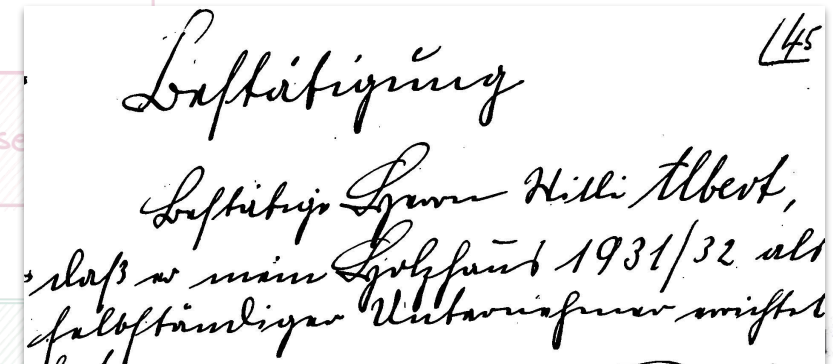 45
Bestätigung
Bestätige Herrn Willi Albert,
daß er mein Holzhaus 1931/32 als
selbständiger Unternehmer errichtet